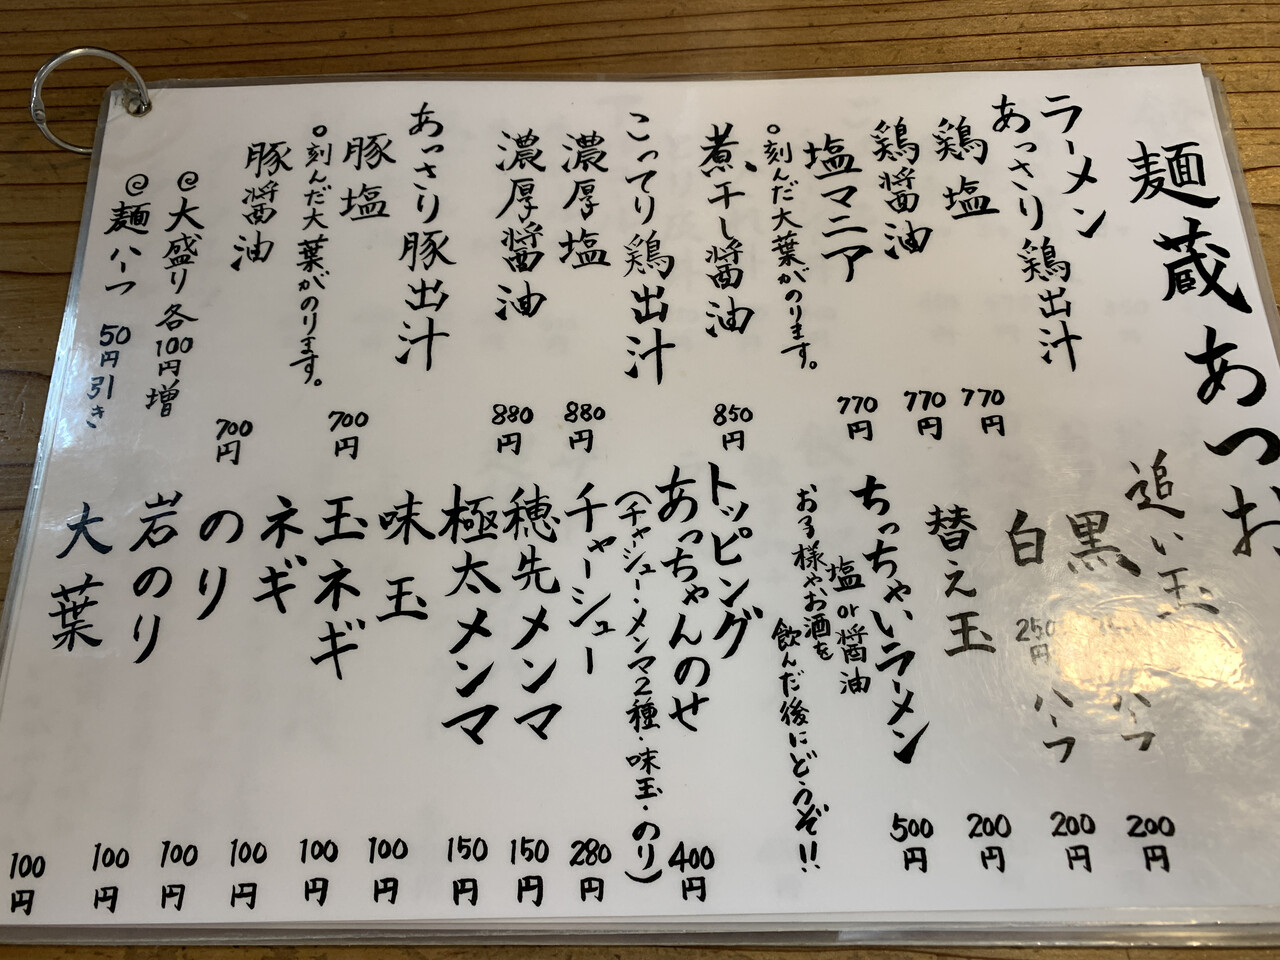 麺蔵あつお
ラーメン
あっさり鶏出汁
鶏塩 770円
鶏醤油 770円
塩マニア 770円
○刻んだ大葉がのります。
煮干し醤油 850円
こってり鶏出汁
濃厚塩 880円
濃厚醤油 880円
あっさり豚出汁
豚塩 700円
○刻んだ大葉がのります。
豚醤油 700円
@大盛り各100円増
@麺ハーフ 50円引き
追い玉
黒 ハーフ 200円
白 250円 ハーフ 200円
替え玉 200円
ちっちゃいラーメン 500円
塩or醤油
お子様やお酒を
飲んだ後にどうぞ!!
トッピング
あっちゃんのせ 400円
(チャーシュー・メンマ2種・味玉・のり)
チャーシュー 280円
穂先メンマ 150円
極太メンマ 150円
味玉 100円
玉ネギ 100円
ネギ 100円
のり 100円
岩のり 100円
大葉 100円